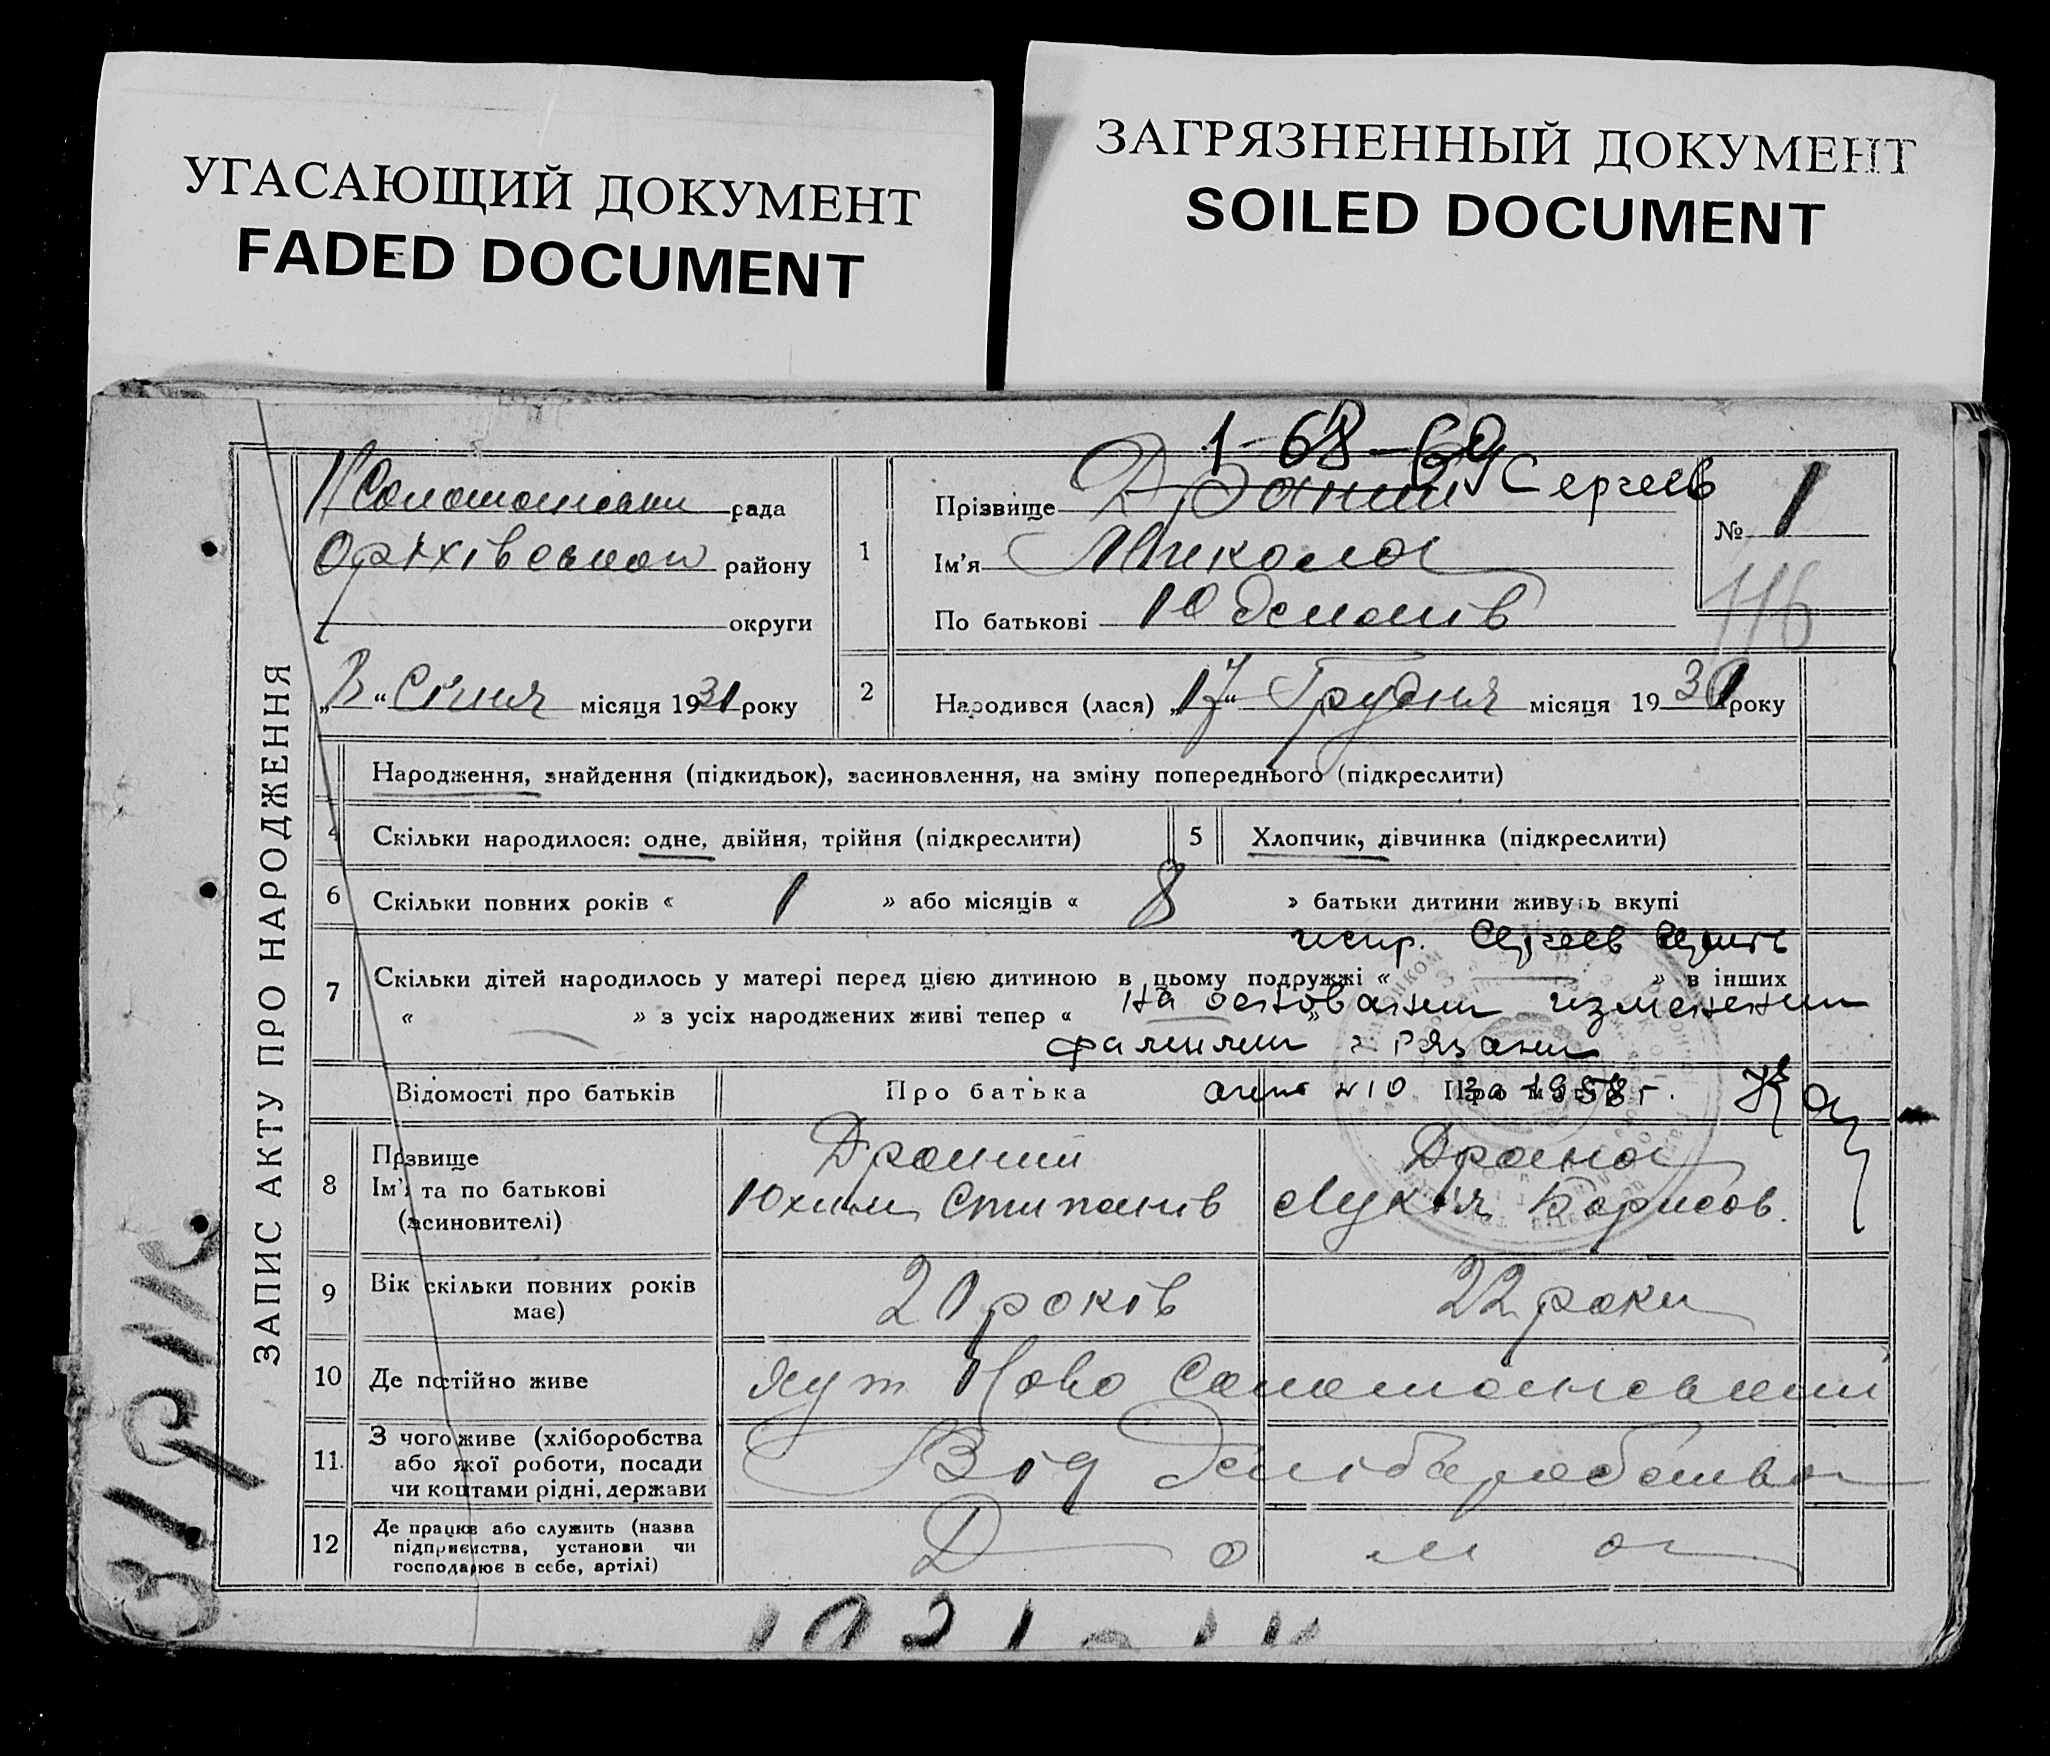 УГАСАЮЩИЙ ДОКУМЕНТ
FADED DOCUMENT
ЗАГРЯЗНЕННЫЙ ДОКУМЕНТ
SOILED DOCUMENT
1-68-69
ЗАПИС АКТУ ПРО НАРОДЖЕННЯ
рада
району
округи
„ “ Січня місяця 1931 року
1
Прізвище Сергеев
Ім'я Микола
По батькові
№ 1
116
2
Народився (лася) „17“ Грудня місяця 1930 року
Народження, знайдення (підкидьок), засиновлення, на зміну попереднього (підкреслити)
4 Скільки народилося: одне, двійня, трійня (підкреслити)
5 Хлопчик, дівчинка (підкреслити)
6 Скільки повних років « 1 » або місяців « 8 » батьки дитини живуть вкупі
испр. Сергеев
7 Скільки дітей народилось у матері перед цією дитиною в цьому подружжі « — » в інших
« — » з усіх народжених живі тепер « »
на основании изменении
фамилии г Рязани
Відомості про батьків
Про батька
№10 за 1958 г.
8 Прізвище
Ім'я та по батькові
(засиновителі)
Драний
Юхим Степанів
Драна
Лукія Борисов.
9 Вік скільки повних років
має)
20 років
22 роки
10 Де постійно живе
хут Ново
11 З чого живе (хліборобства
або якої роботи, посади
чи коштами рідні, держави
Від
12 Де працює або служить (назва
підприємства, установи чи
господарює в себе, артілі)
Дома